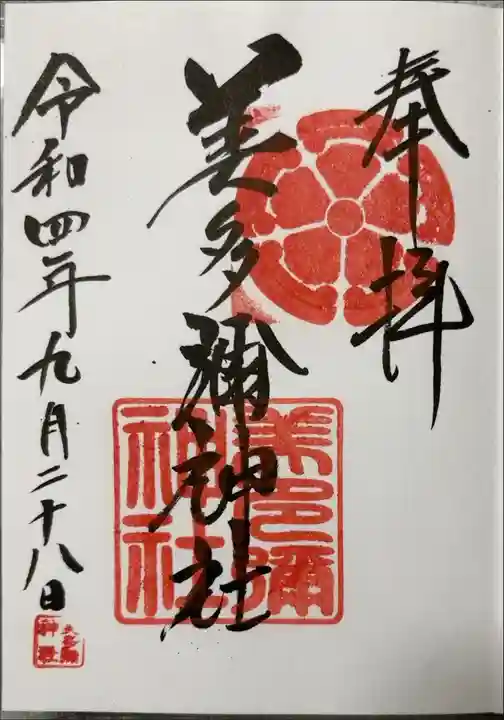 奉拝
美多彌神社
令和四年九月二十八日
美多彌
神社
美多彌
神社